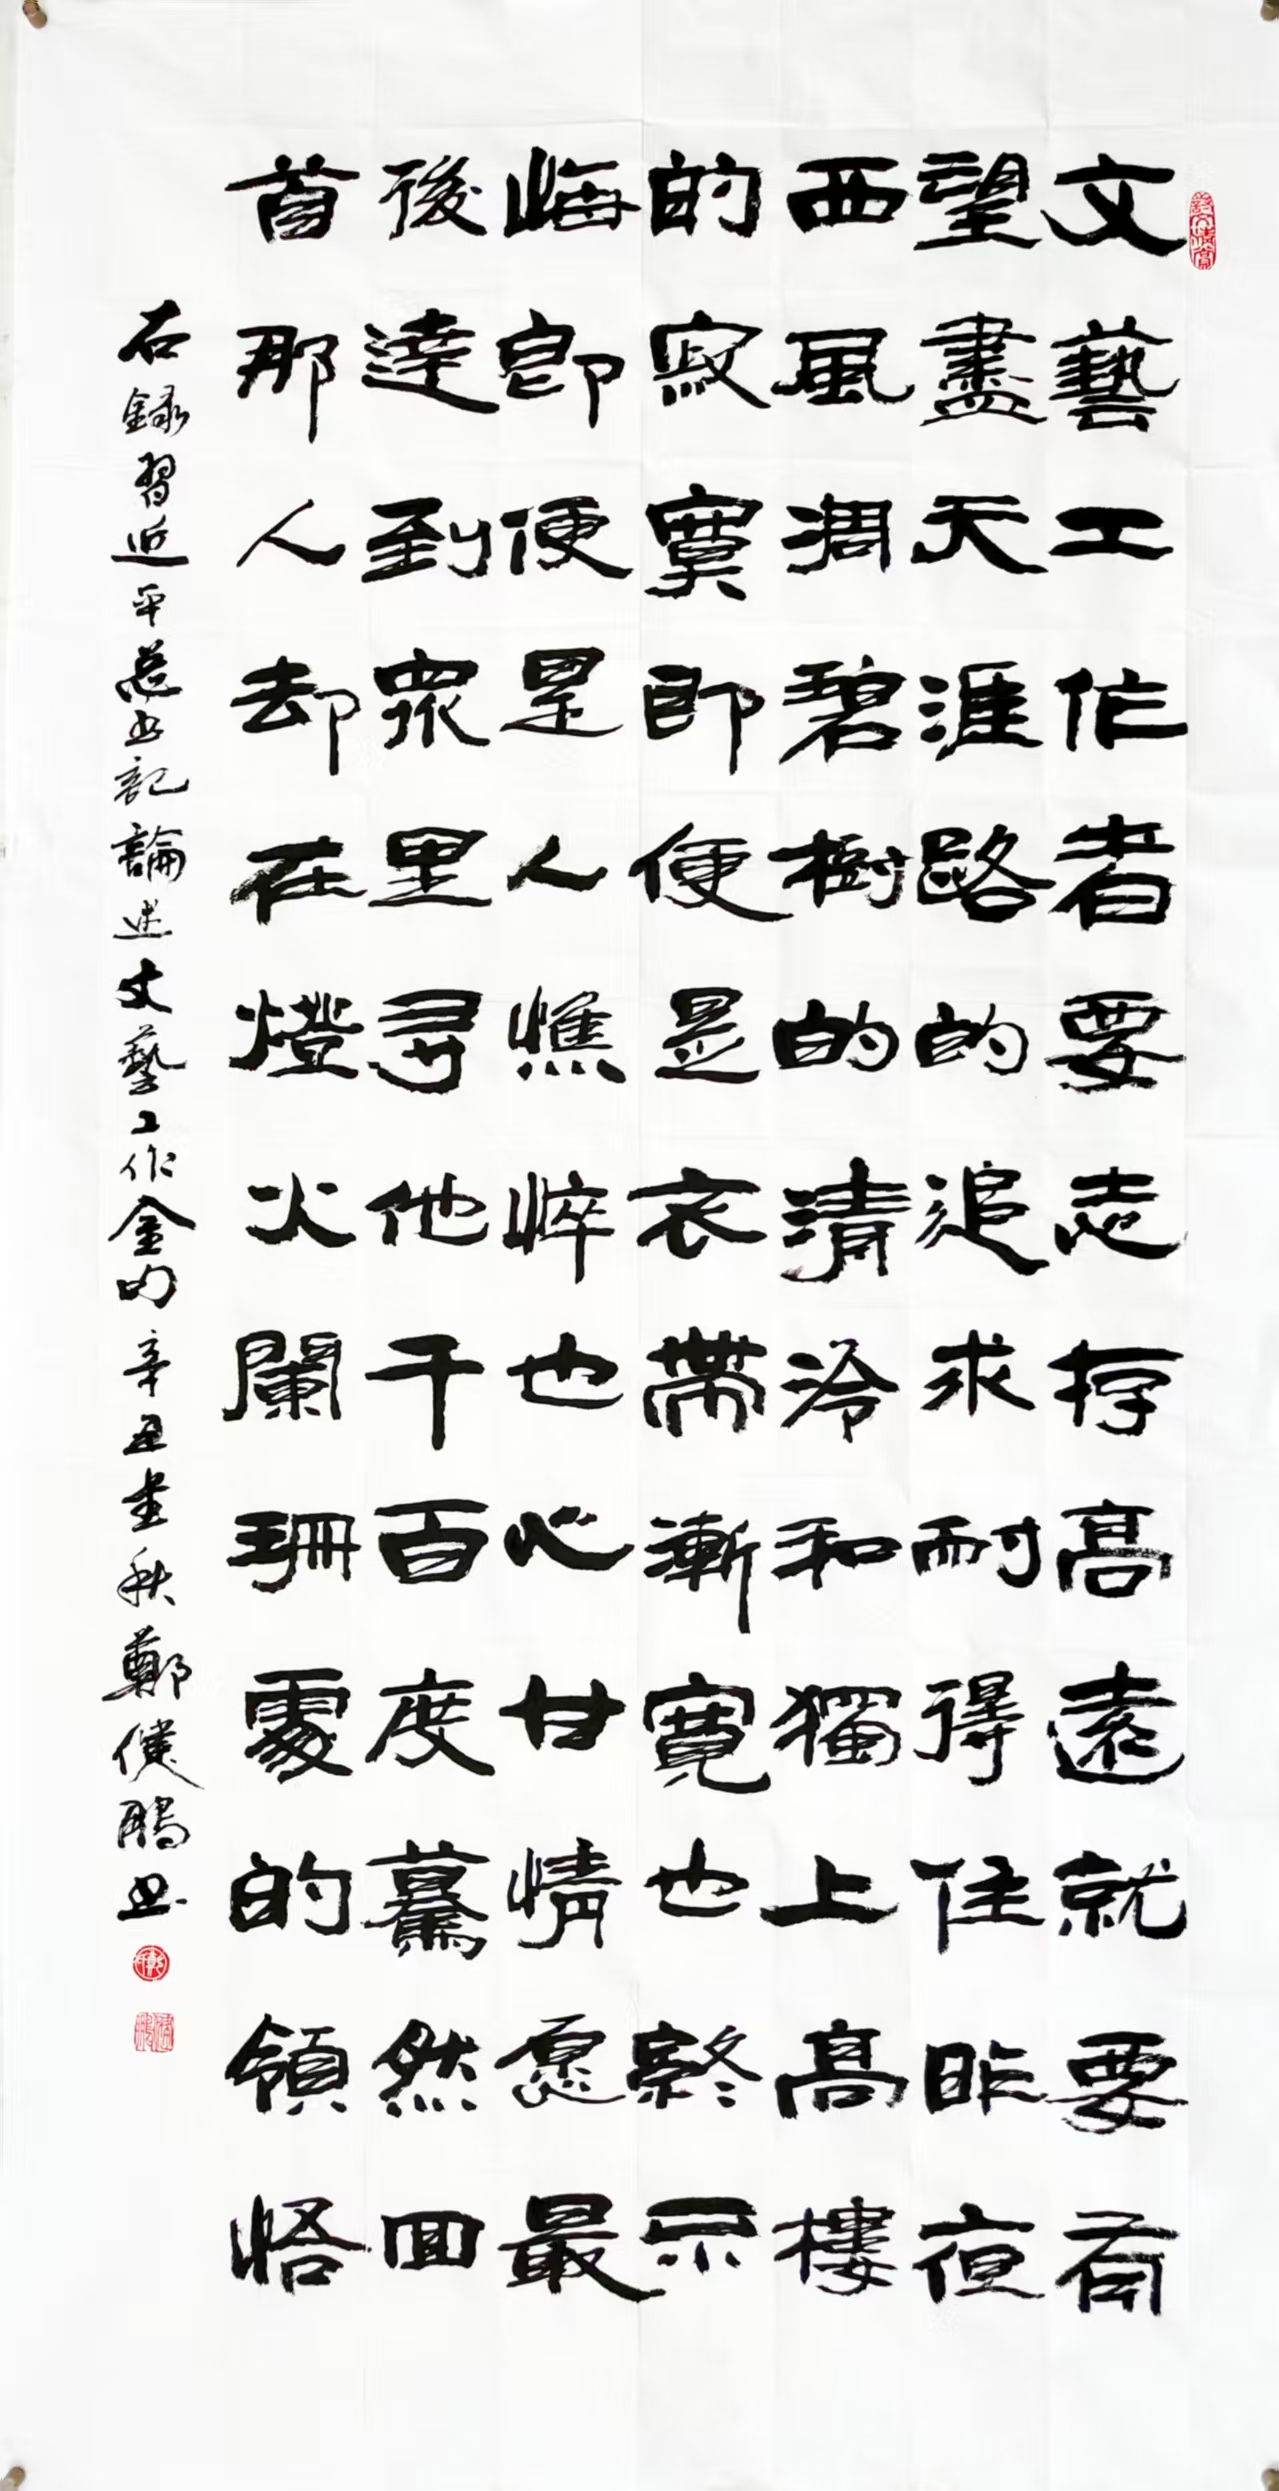 文藝工作者要志存高遠就要有
望盡天涯路的追求耐得住昨夜
西風凋碧樹的清冷和獨上高樓
的寂寞即便是衣帶漸寬也終不
悔即便是人憔悴也心甘情愿最
後達到衆里尋他千百度驀然回
首那人却在燈火闌珊處的領悟
右録習近平總書記論述文藝工作金句辛丑孟秋鄭健鵬書